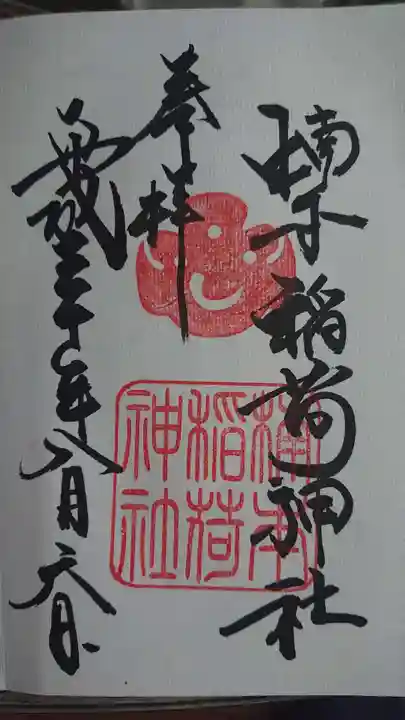 楠本稲荷神社
奉拝
平成三十年八月六日
楠本
稲荷
神社